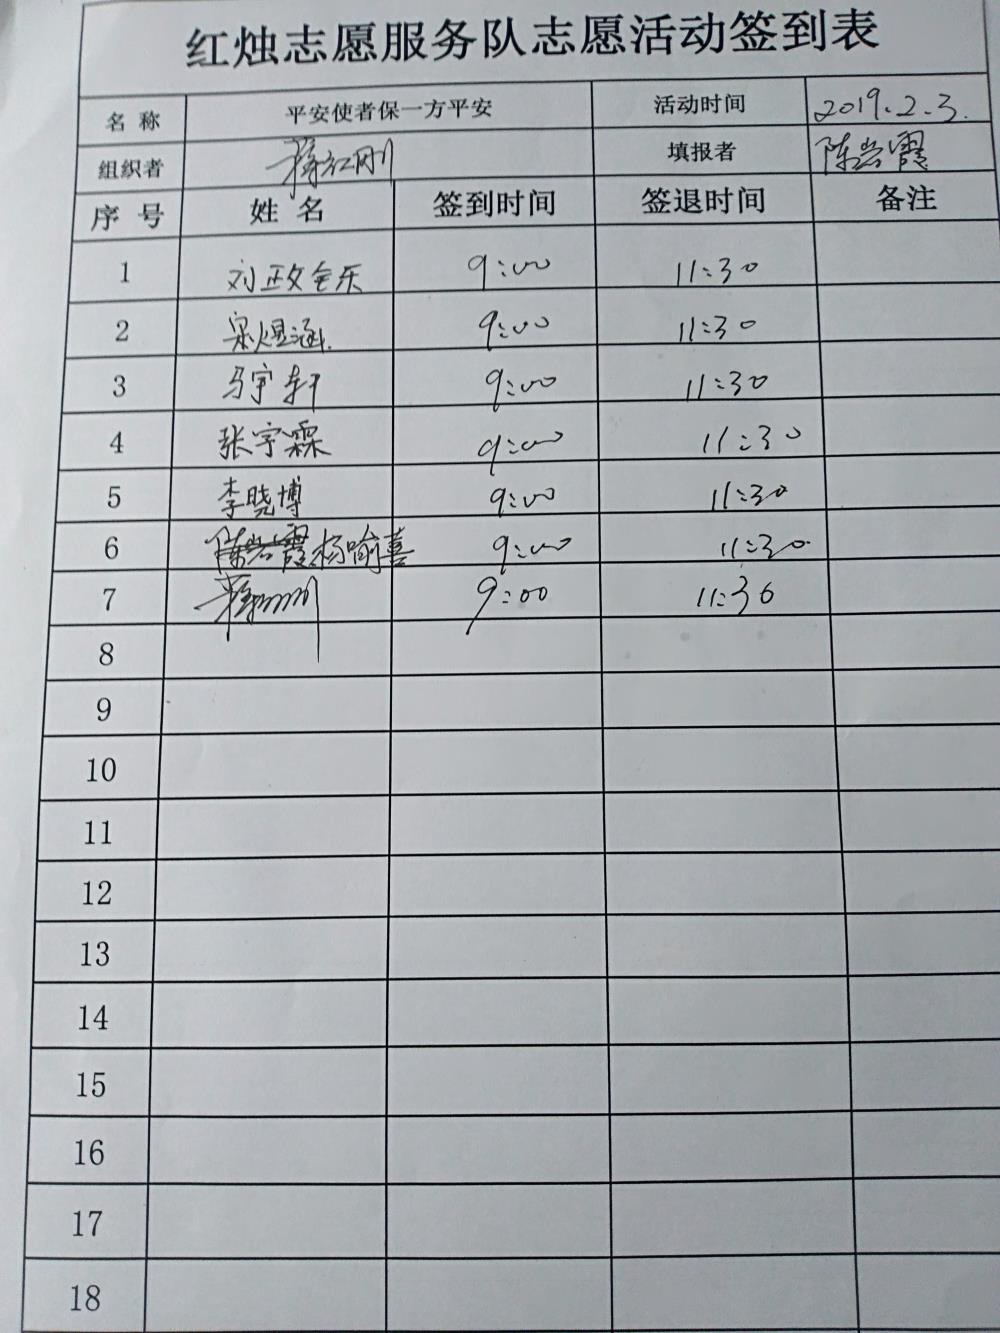 红烛志愿服务队志愿活动签到表
名 称 平安使者保一方平安 活动时间 2019.2.3.
组织者 蒋红刚 填报者 陈岩霞
序 号 姓 名 签到时间 签退时间 备注
1 刘政全乐 9:00 11:30
2 宋煜涵. 9:00 11:30
3 马宇轩 9:00 11:30
4 张宇霖 9:00 11:30
5 李晓博 9:00 11:30
6 陈岩霞杨喻喜 9:00 11:30
7 9:00 11:30
8
9
10
11
12
13
14
15
16
17
18